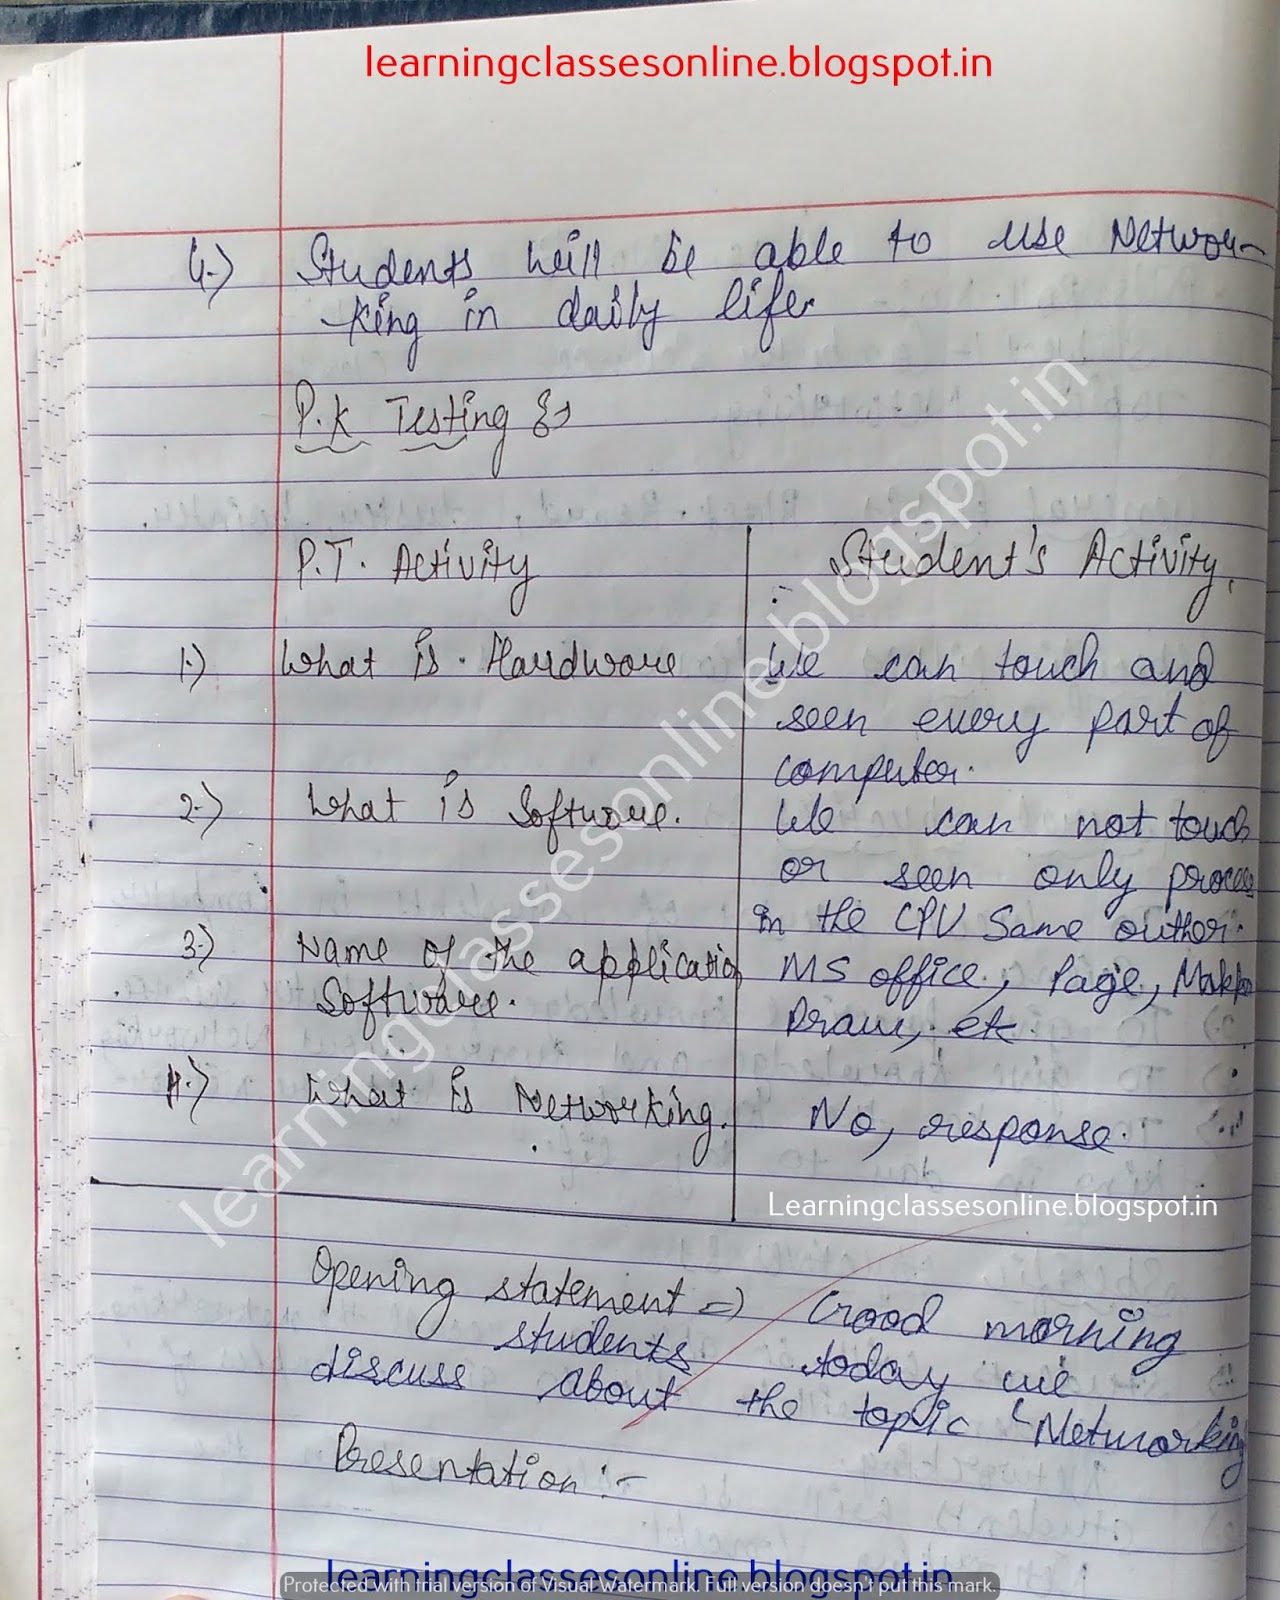 learningclassesonline.blogspot.in
4.) Students will be able to use Networ-
-king in daily life.
P.K Testing
P.T. Activity
Student's Activity.
1.) What is Hardware
We can touch and
seen every part of
computer.
2.) What is Software.
We can not touch
or seen only process
in the CPU Same outher.
3.) Name of the application
Software.
MS office, Page,
Draw, etc
4.) What is Networking.
No, response.
learningclassesonline.blogspot.in
Learningclassesonline.blogspot.in
Opening statement => Good morning
students today we
discuss about the topic 'Networking
Presentation :-
learningclassesonline.blogspot.in
Protected with trial version of Visual Watermark. Full version doesn't put this mark.